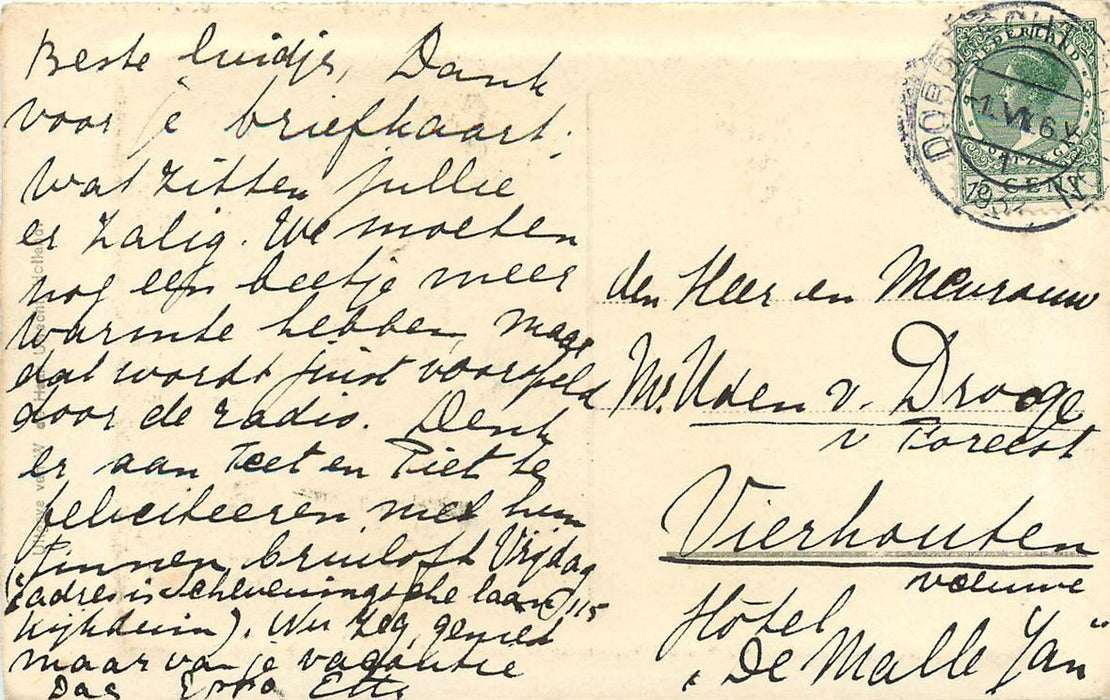 Beste luidjs, Dank
voor je briefkaart.
Wat zitten jullie
er zalig. We moeten
nog een beetje meer
warmte hebben, maar
dat wordt juist voorspeld
door de radio. Denk
er aan Teet en Piet te
feliciteeren met hun
tinnen bruiloft Vrijdag
(adres is Scheveningsche laan 115
Kijkduin). Nu zeg, geniet
maar van je vacantie
Dag
den Heer en Mevrouw
Mr. Uden v. Drooge
v Foreest
Vierhouten
Veluwe
Hôtel
„De Malle Jan"
DORDRECHT
NEDERLAND
CENT